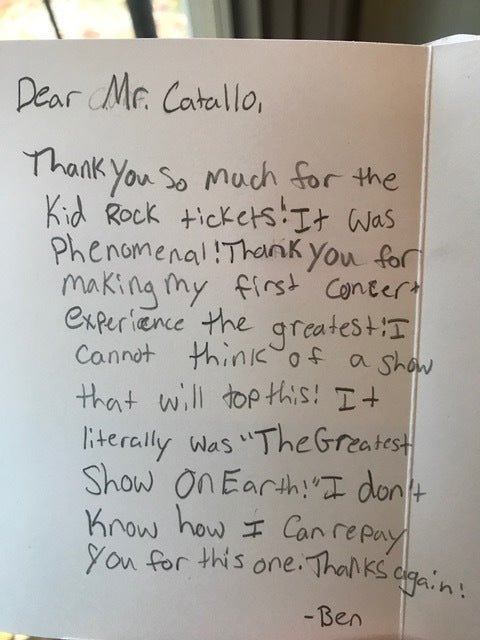 Dear Mr. Catallo,
Thank you so much for the
Kid Rock tickets! It was
Phenomenal! Thank you for
making my first concert
experience the greatest! I
cannot think of a show
that will top this! It
literally was "The Greatest
Show On Earth!" I don't
know how I can repay
you for this one. Thanks again!
-Ben